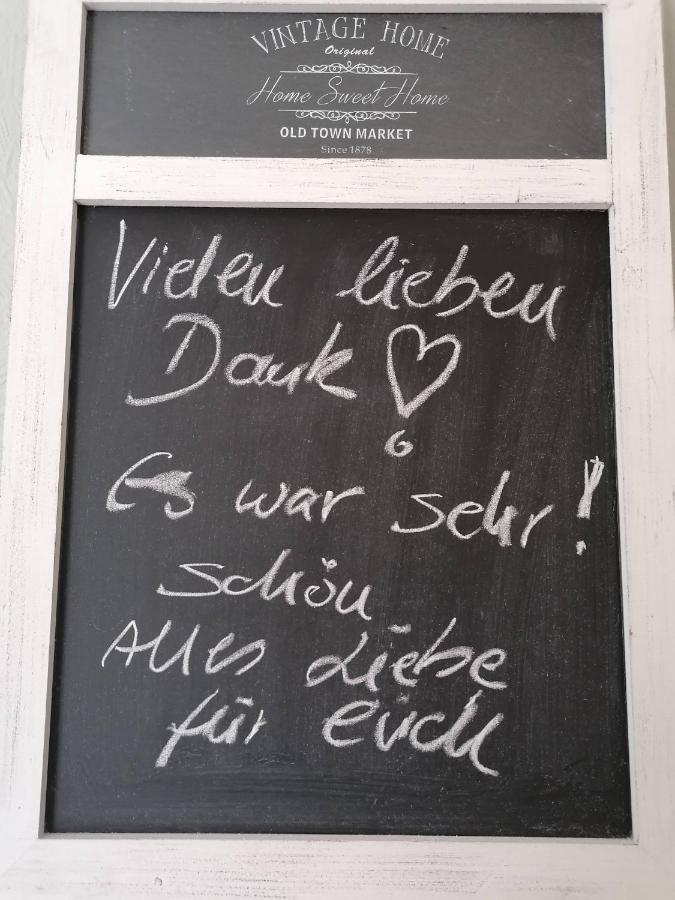 VINTAGE HOME
Original
Home Sweet Home
OLD TOWN MARKET
Since 1878
Vielen lieben
Dank ♡
Es war sehr !
schön
Alles Liebe
für euch